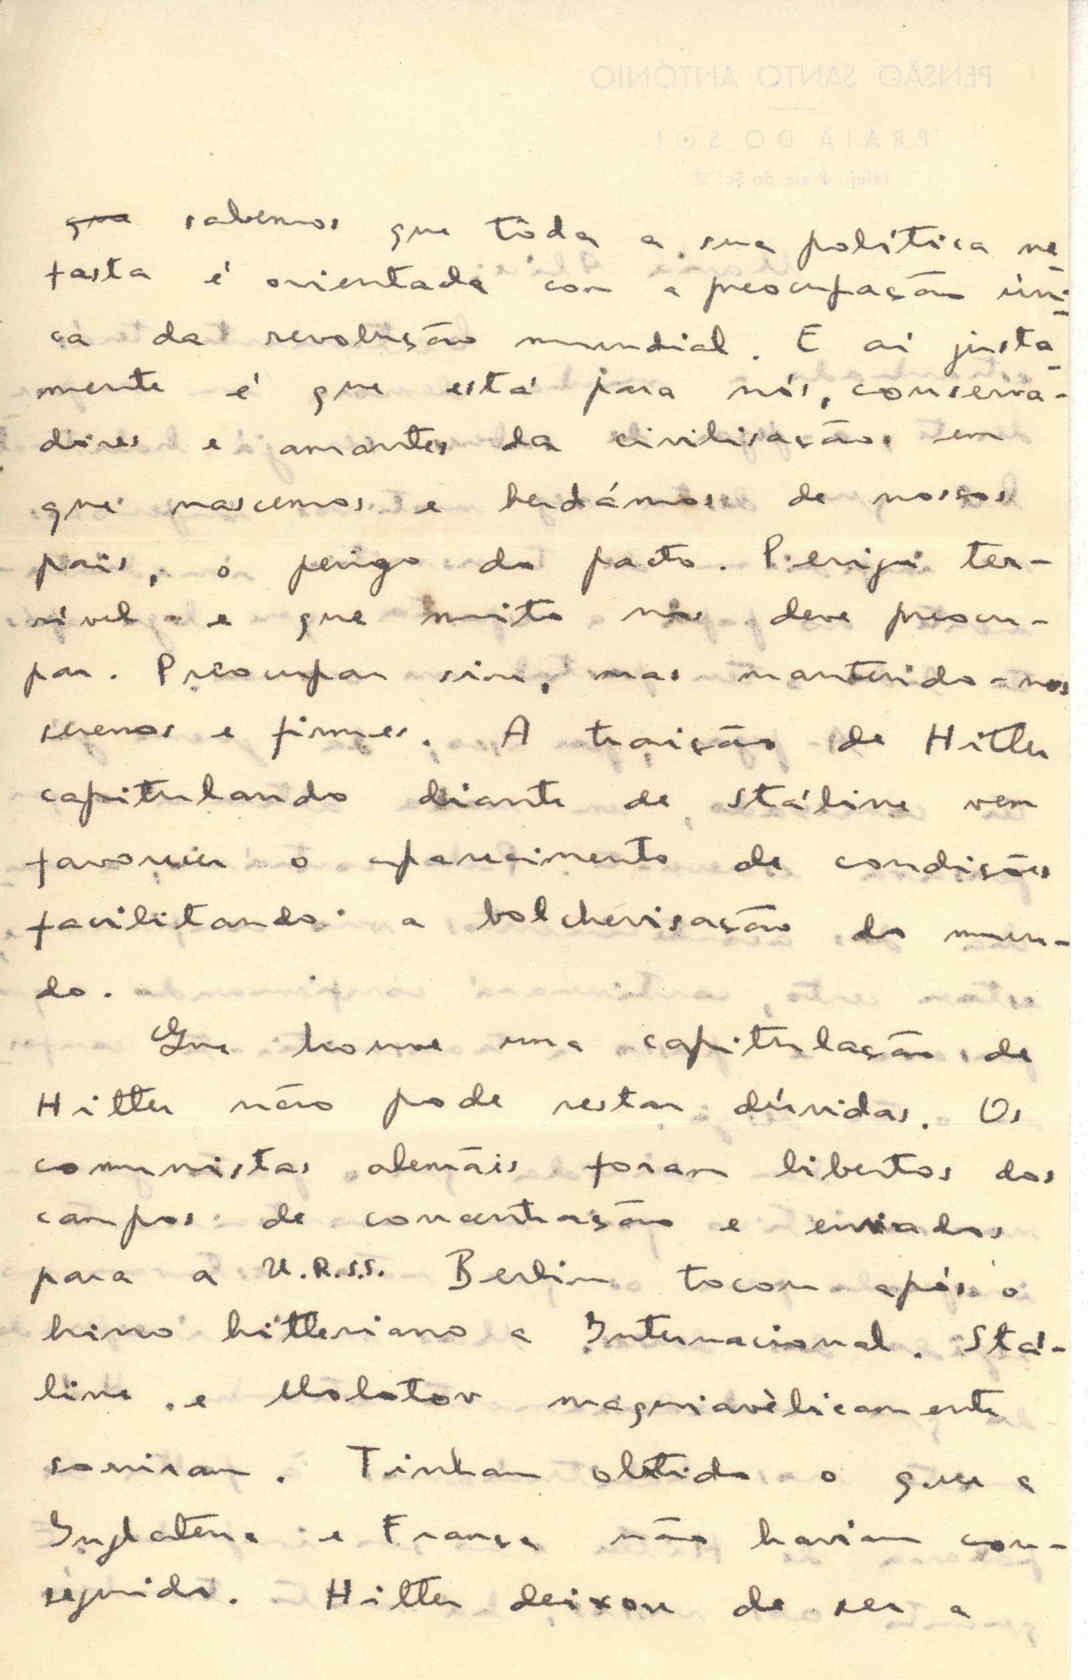 PENSÃO SANTO ANTÓNIO
PRAIA DO SOL
que sabemos que tôda a sua política ne-
fasta é orientada com a preocupação úni-
ca da revolução mundial. E aí justa-
mente é que está para nós, conserva-
dores e amantes da civilisação em
que nascemos e herdámos de nossos
pais, o perigo do pacto. Perigo ter-
rível e que muito nos deve preocu-
par. Preocupar sim, mas mantendo-nos
serenos e firmes. A traição de Hitler
capitulando diante de Stáline vem
favorecer o aparecimento de condições
facilitando a bolchevisação do mun-
do.
Que houve uma capitulação de
Hitler não pode restar dúvidas. Os
comunistas alemãis foram libertos dos
campos de concentração e enviados
para a U.R.S.S. Berlim tocou após o
hino hitleriano a Internacional. Stá-
line e Molotov maquiavèlicamente
sorriram. Tinham obtido o que a
Inglaterra e França não haviam con-
seguido. Hitler deixou de ser a